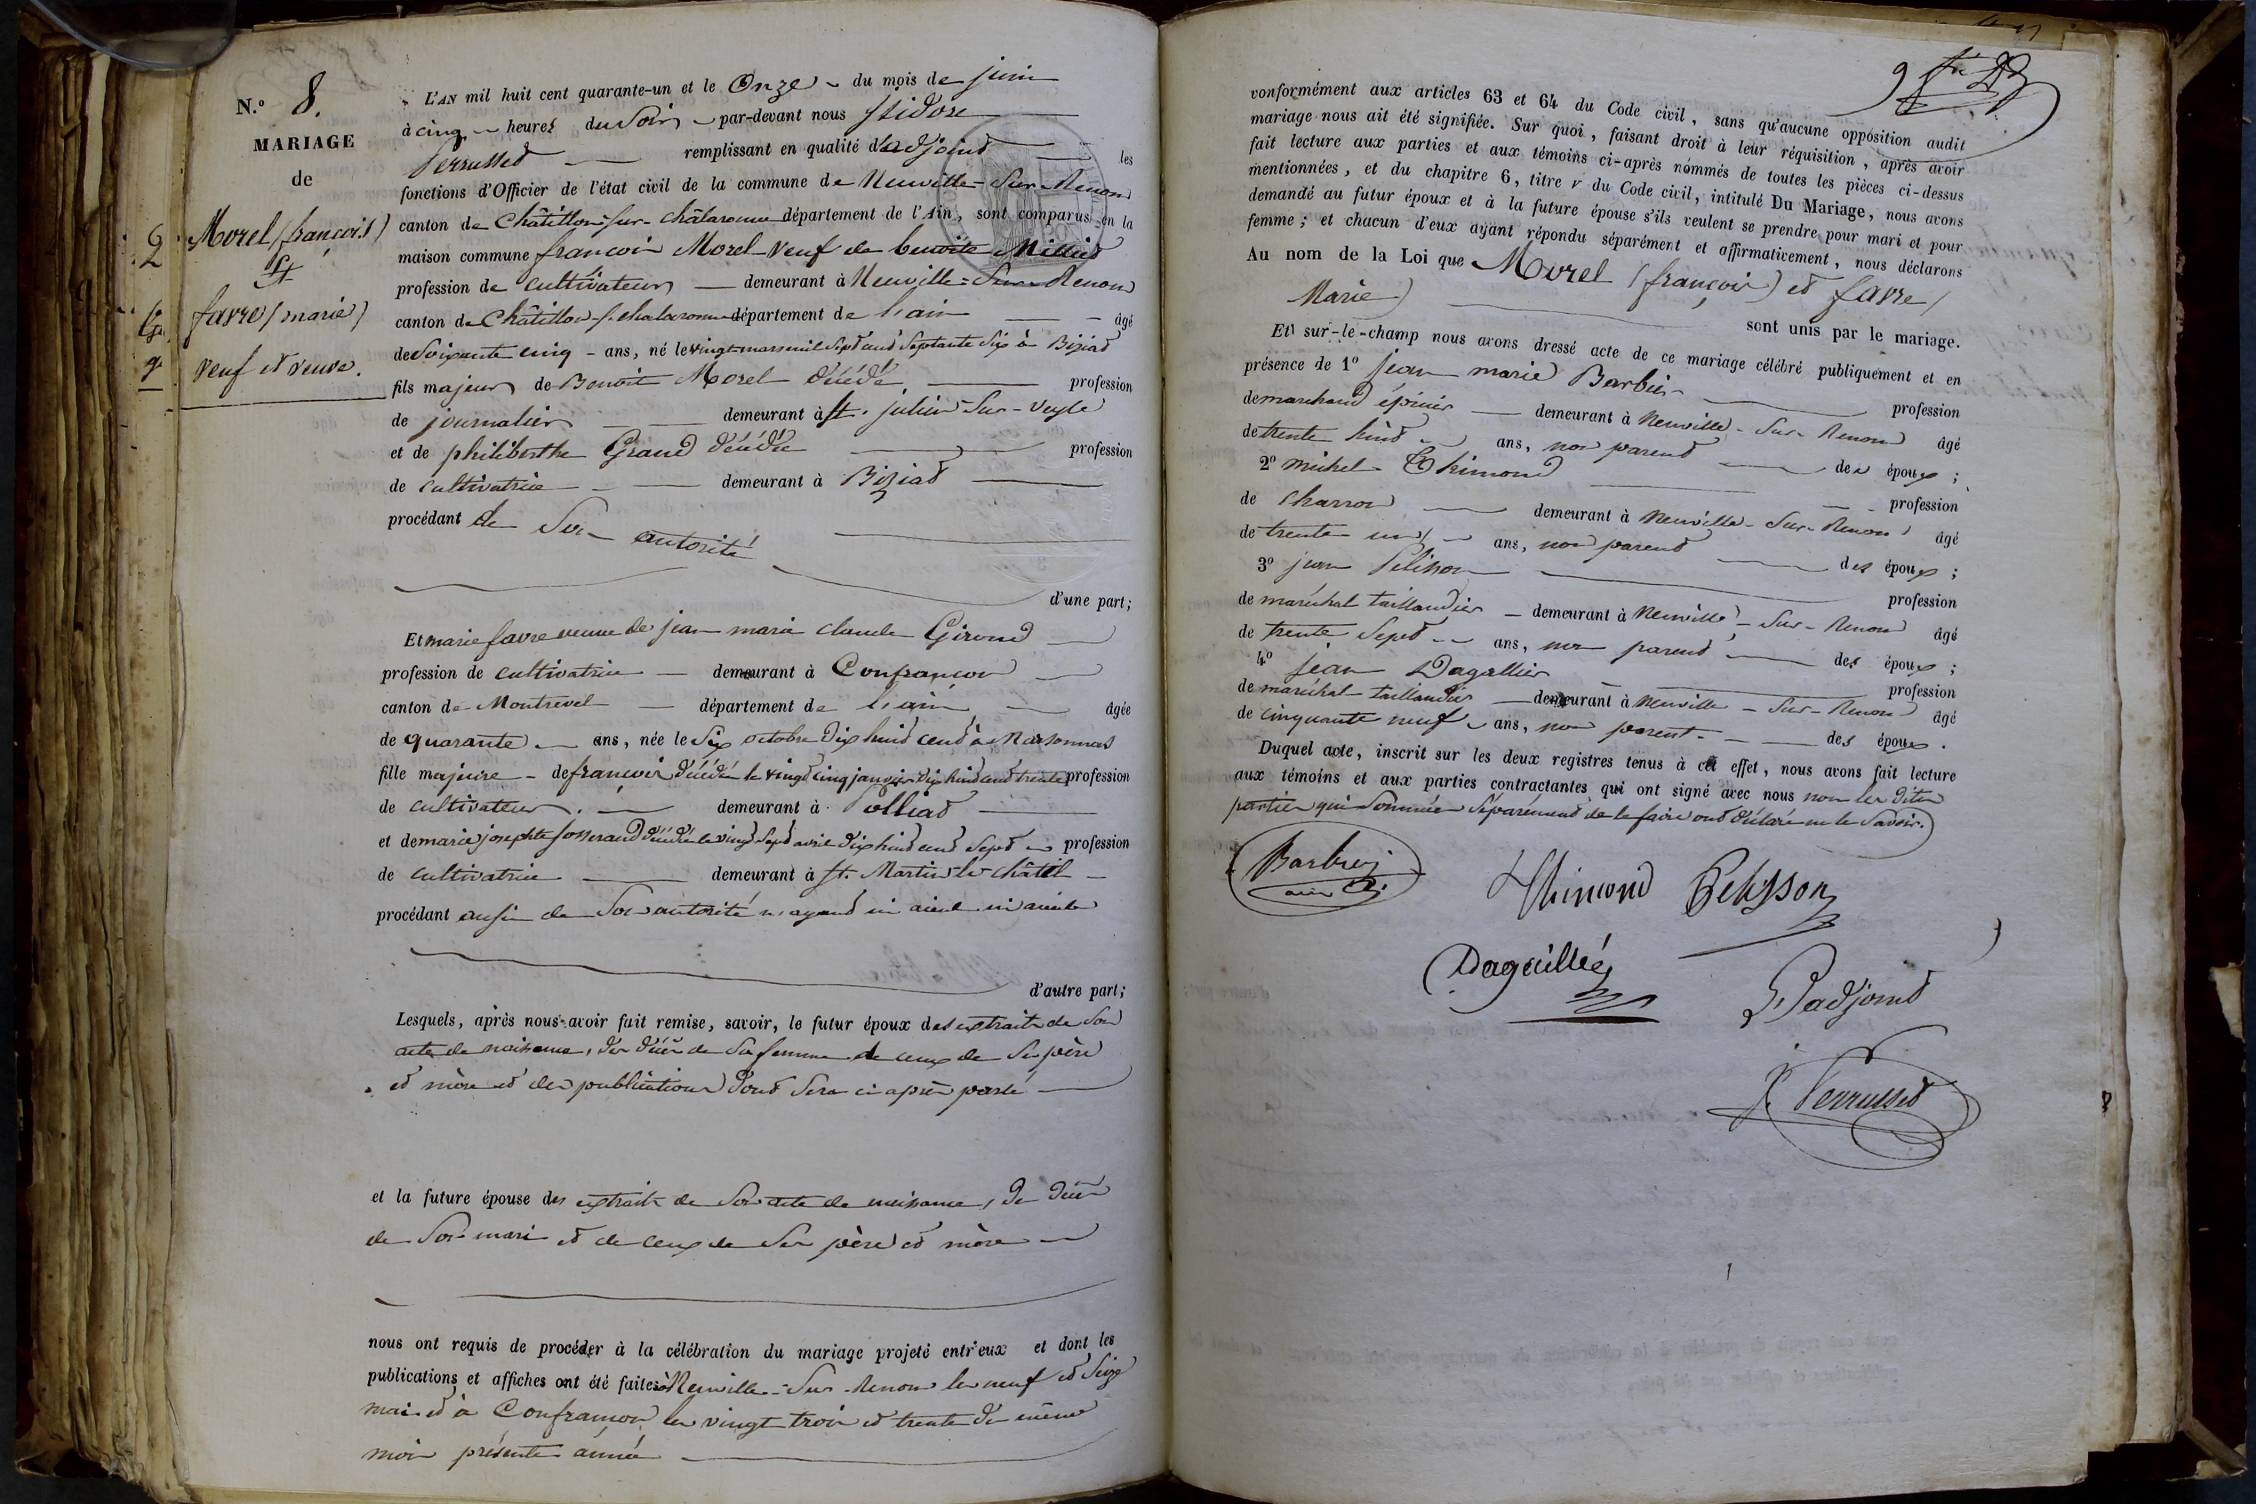 N.º 8.
MARIAGE
de
Morel (françois)
Et
favre (marie)
veuf et veuve.
L'AN mil huit cent quarante-un et le Onze du mois de juin
à cinq heures du Soir par-devant nous Isidore
Perrusset remplissant en qualité d'adjoint les
fonctions d'Officier de l'état civil de la commune de Neuville-Sur-Renon
canton de Châtillon-sur-chalaronne département de l'Ain, sont comparus en la
maison commune françois Morel veuf de benoite Milliet
profession de cultivateur demeurant à Neuville-Sur-Renon
canton de Châtillon-s-chalaronne département de l'ain âgé
de Soixante cinq ans, né le vingt mars mil Sept cent Septante Six à Biziat
fils majeur de Benoit Morel décédé profession
de journalier demeurant à St. julien-Sur-Veyle
et de philiberthe Grand décédée profession
de cultivatrice demeurant à Biziat
procédant de Son autorité
d'une part;
Et marie favre veuve de jean marie claude Giroud
profession de cultivatrice demeurant à Confrançon
canton de Montrevel département de l'ain âgée
de quarante ans, née le Six octobre dix huit cent à Marsonnas
fille majeure de françois décédé le vingt cinq janvier dix huit cent trente profession
de cultivateur demeurant à Polliat
et de marie josephte josserand décédée le vingt Sept avril dix huit cent Sept profession
de cultivatrice demeurant à St. Martin-le-châtel
procédant aussi de Son autorité n'ayant ni aieul ni aieule
d'autre part;
Lesquels, après nous avoir fait remise, savoir, le futur époux des extraits de Son
acte de naissance, du décès de Sa femme de ceux de Ses père
et mère et des publications dont Sera ci après parlé
et la future épouse des extraits de Son acte de naissance, du décès
de Son mari et de ceux de Ses père et mère
nous ont requis de procéder à la célébration du mariage projeté entr'eux et dont les
publications et affiches ont été faites à Neuville-Sur-Renon les neuf et Seize
mai et à Confrançon les vingt trois et trente du même
mois présente année
conformément aux articles 63 et 64 du Code civil, sans qu'aucune opposition audit
mariage nous ait été signifiée. Sur quoi, faisant droit à leur réquisition, après avoir
fait lecture aux parties et aux témoins ci-après nommés de toutes les pièces ci-dessus
mentionnées, et du chapitre 6, titre v du Code civil, intitulé Du Mariage, nous avons
demandé au futur époux et à la future épouse s'ils veulent se prendre pour mari et pour
femme; et chacun d'eux ayant répondu séparément et affirmativement, nous déclarons
Au nom de la Loi que Morel (françois) et favre (
Marie)
sont unis par le mariage.
Et sur-le-champ nous avons dressé acte de ce mariage célébré publiquement et en
présence de 1º jean marie Barbier profession
de marchand épicier demeurant à Neuville-Sur-Renon âgé
de trente huit ans, non parent des époux;
2º michel Thimond profession
de charron demeurant à Neuville-Sur-Renon âgé
de trente un ans, non parent des époux;
3º jean Pélisson profession
de maréchal taillandier demeurant à Neuville-Sur-Renon âgé
de trente Sept ans, non parent des époux;
4º jean Dagallier profession
de maréchal taillandier demeurant à Neuville-Sur-Renon âgé
de cinquante neuf ans, non parent des époux.
Duquel acte, inscrit sur les deux registres tenus à cet effet, nous avons fait lecture
aux témoins et aux parties contractantes qui ont signé avec nous non les dites
parties qui Sommées Séparément de le faire ont déclaré ne le Savoir.
Barbier
Thimond Pelisson
L'adjoint
J. Perrusset